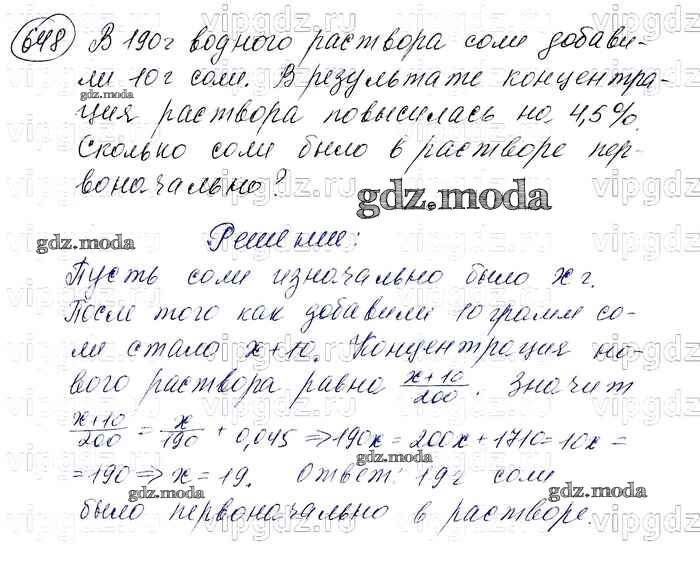 648 В 190г водного раствора соли добави-
ли 10г соли. В результате концентра-
gdz.moda
ция раствора повысилась на 4,5%.
Сколько соли было в растворе пер-
воначально?
gdz.moda
Решение:
gdz.moda
Пусть соли изначально было x г.
После того как добавили 10 грамм со-
ли стало x+10. Концентрация но-
вого раствора равна x+10/200. Значит
x+10/200 = x/190 + 0,045 ⇒ 190x = 200x + 1710 = 10x =
= 190 ⇒ x = 19. Ответ: 19г соли
gdz.moda
gdz.moda
было первоначально в растворе.